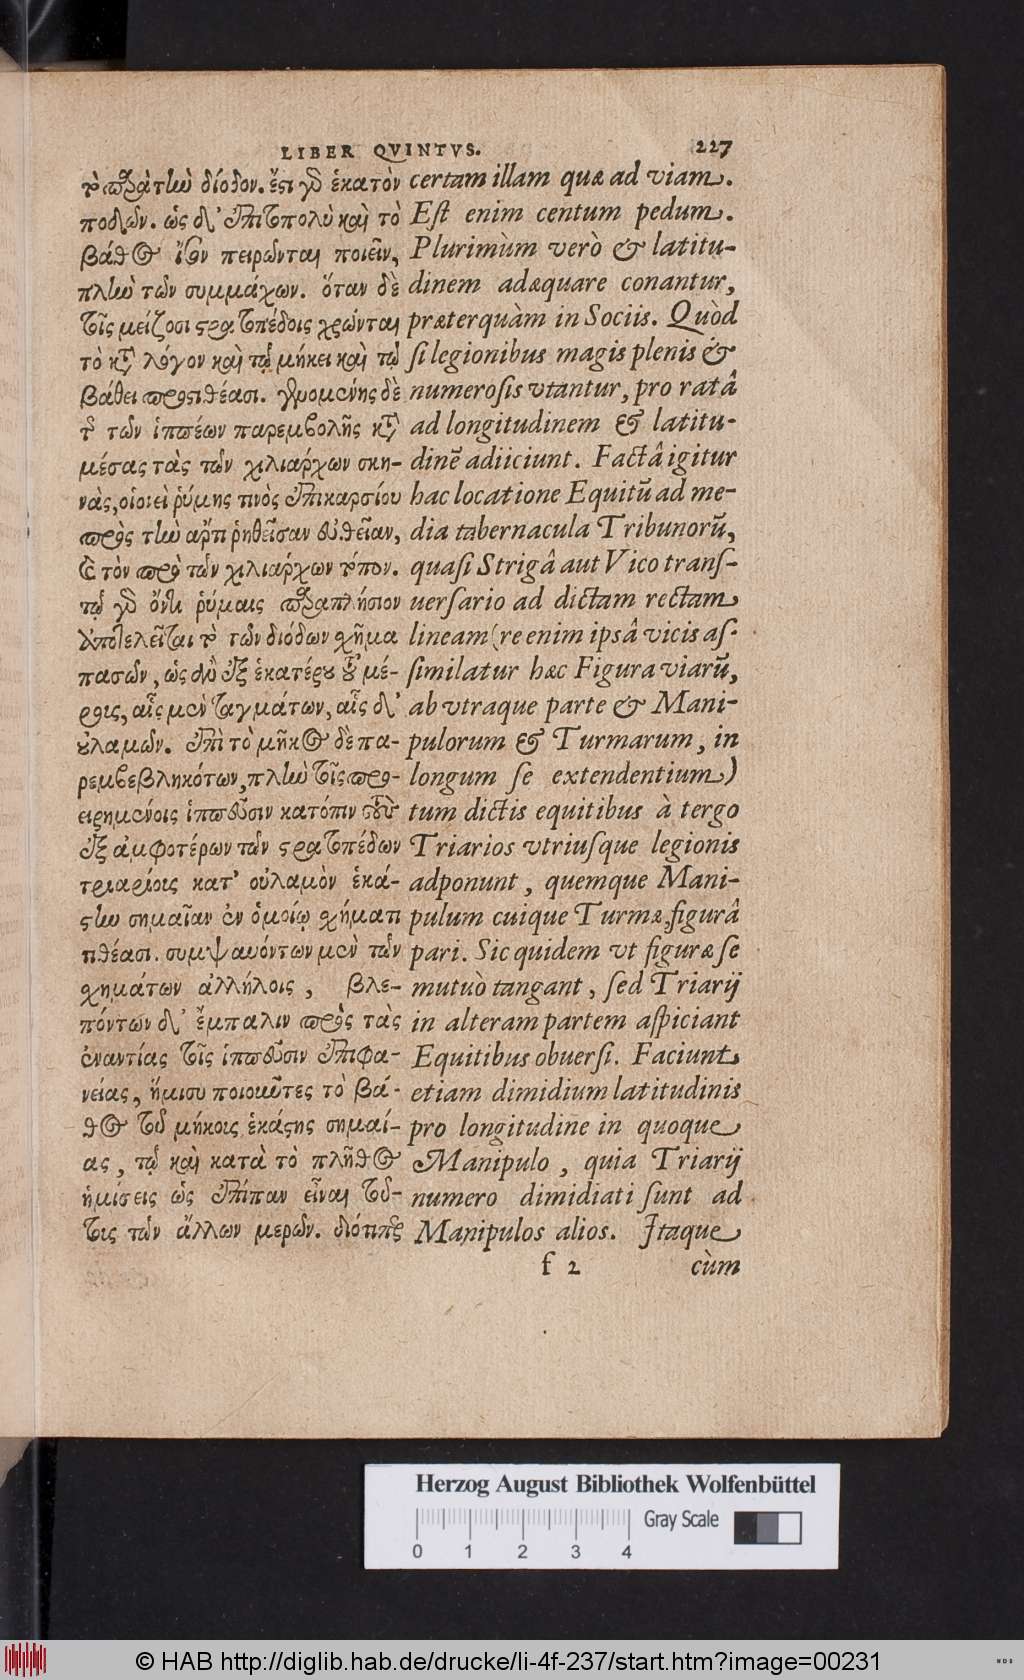 LIBER QVINTVS. 227
τὸ παρὰ τὴν δίοδον. ἔστι γὸ ἑκατὸν
ποδῶν. ὡς δ' ἐπιτοπολὺ καὶ τὸ
βάθος ἴσον πειρῶνται ποιεῖν,
πλὴν τῶν συμμάχων. ὅταν δὲ
τοῖς μείζοσι στρατοπέδοις χρῶνται
τὸ κατὰ λόγον καὶ τῷ μήκει καὶ τῷ
βάθει προστιθέασι. γινομένης δὲ
τῆς τῶν ἱππέων παρεμβολῆς κατὰ
μέσας τὰς τῶν χιλιάρχων σκη-
νὰς, οἱονεὶ ῥύμης τινὸς ἐπικαρσίου
πρὸς τὴν ἄρτι ῥηθεῖσαν εὐθεῖαν,
καὶ τὸν πρὸ τῶν χιλιάρχων τόπον.
τῷ γὸ ὄντι ῥύμαις παραπλήσιον
ἀποτελεῖται τὸ τῶν διόδων σχῆμα
πασῶν, ὡς ἂν ἐξ ἑκατέρου τοῦ μέ-
ρους, αἷς μὲν ταγμάτων, αἷς δ'
οὐλαμῶν. ἐπὶ τὸ μῆκος δὲ πα-
ρεμβεβληκότων, πλὴν τοῖς προ-
ειρημένοις ἱππεῦσιν κατόπιν τοὺς
ἐξ ἀμφοτέρων τῶν στρατοπέδων
τριαρίοις κατ' οὐλαμὸν ἑκά-
στην σημαῖαν ἐν ὁμοίῳ σχήματι
τιθέασι. συμψαυόντων μὲν τῶν
σχημάτων ἀλλήλοις, βλε-
πόντων δ' ἔμπαλιν πρὸς τὰς
ἐναντίας τοῖς ἱππεῦσιν ἐπιφα-
νείας, ἥμισυ ποιοῦντες τὸ βά-
θος τοῦ μήκοις ἑκάστης σημαί-
ας, τῷ καὶ κατὰ τὸ πλῆθος
ἡμίσεις ὡς ἐπίπαν εἶναι τού-
τοις τῶν ἄλλων μερῶν. διόπερ
certam illam quæ ad viam.
Est enim centum pedum.
Plurimùm verò & latitu-
dinem adæquare conantur,
præterquàm in Sociis. Quòd
si legionibus magis plenis &
numerosis vtantur, pro ratâ
ad longitudinem & latitu-
dinē adiiciunt. Factâ igitur
hac locatione Equitū ad me-
dia tabernacula Tribunorū,
quasi Strigâ aut Vico trans-
uersario ad dictam rectam
lineam (re enim ipsâ vicis as-
similatur hæc Figura viarū,
ab vtraque parte & Mani-
pulorum & Turmarum, in
longum se extendentium)
tum dictis equitibus à tergo
Triarios vtriusque legionis
adponunt, quemque Mani-
pulum cuique Turmæ, figurâ
pari. Sic quidem vt figuræ se
mutuò tangant, sed Triarij
in alteram partem aspiciant
Equitibus obuersi. Faciunt
etiam dimidium latitudinis
pro longitudine in quoque
Manipulo, quia Triarij
numero dimidiati sunt ad
Manipulos alios. Itaque
f 2 cùm
Herzog August Bibliothek Wolfenbüttel
Gray Scale
0 1 2 3 4
© HAB http://diglib.hab.de/drucke/li-4f-237/start.htm?image=00231